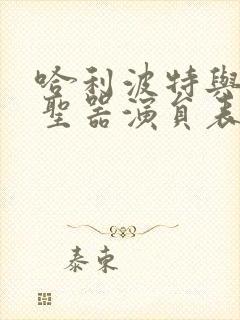 哈利波特與
聖器演員表
泰東